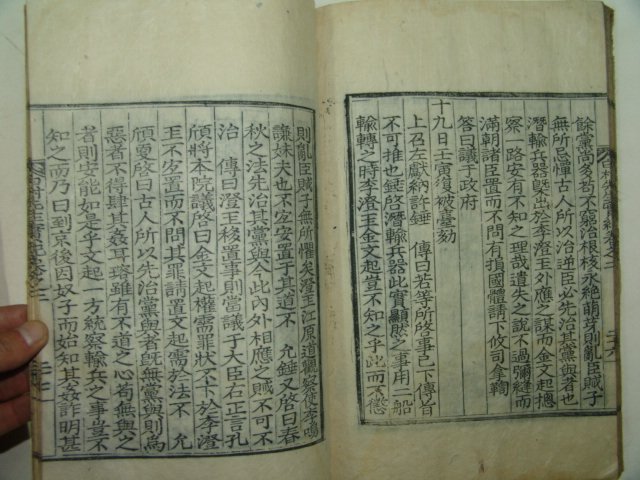 餘黨尚多苟不窮治根株永絶萌芽則亂臣賊子
無所忌憚古人所以治逆臣必先治其黨與者也
潛輸兵器旣出於李澄玉外應之謀而金文起摠
察一路安有不知之理哉遺失之說不過彌縫而
滿朝諸臣置而不問有損國體請下攸司拿鞫
答曰議于政府
十九日壬寅復被臺劾
上召左獻納許錘 傳曰若等所啓事已下傳旨
不可推也錘啓潛輸兵器此實顯然之事用一船
輸轉之時李澄玉金文起豈不知之乎此而不懲
則亂臣賊子無所懼矣澄玉江原道觀察使李鳴
謙妹夫也不宜安置于其道不 允錘又啓曰春
秋之法先治其黨與今此內外相應之賊不可不
治 傳曰澄玉移置事則當議于大臣右正言孔
頎將本院議啓曰金文起權需罪狀不下於李澄
玉不宜置而不問其罪請置文起需於法不 允
頎更啓曰古人所以先治黨與者旣無黨與則為
惡者不得肆其姦耳瑢雖有不道之心苟無與之
者則安能如是乎文起一方統察輸兵之事豈不
知之而乃曰到京後因奴子而始知其姦詐明甚